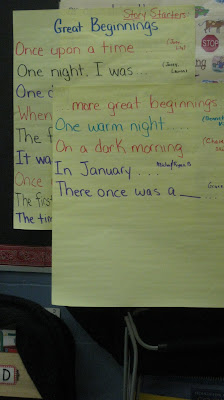 Story Starters
Great Beginnings
Once upon a time
One night, I was ...
One
When
The f
It wa
Once
The first
The tim
more great beginnings
One warm night ....
On a dark morning ...
In January ...
There once was a ___ ...
STOP
D